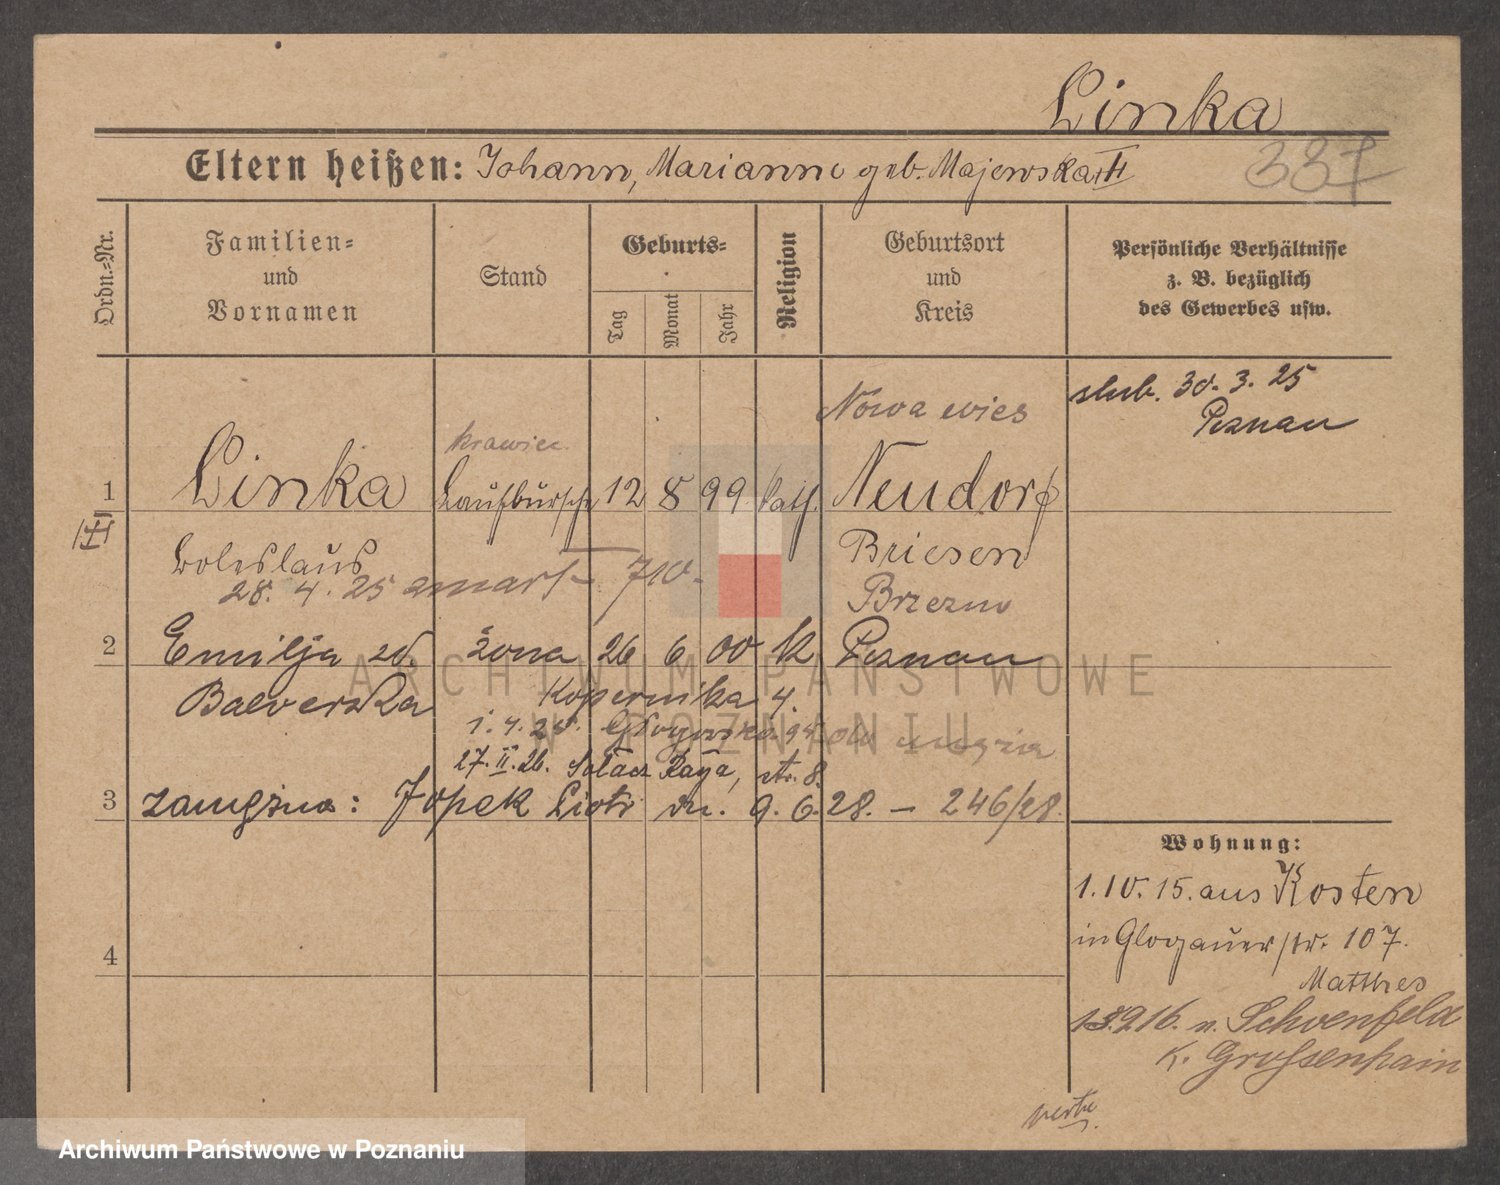 Linka
Eltern heißen: Johann, Marianne geb. Majewska
387
Ordn.-Nr.
Familien-
und
Vornamen
Stand
Geburts-
Tag
Monat
Jahr
Religion
Geburtsort
und
Kreis
Persönliche Verhältnisse
z. B. bezüglich
des Gewerbes usw.
slub. 30. 3. 25
Poznań
Nowa wies
krawiec
1 Linka Laufbursche 12 8 99 kath. Neudorf
Boleslaus
Briesen
28. 4. 25 zmarł - 710.
Brzezno
2 Emilja zd. żona 26 6 00 k Poznań
Baeverska Kopernika 4.
1. 4. 25. Głogowska 94 od męża
27. II. 26. Sołacz Raya, str. 8.
3 zamężna: Jopek Piotr dn. 9. 6. 28. - 246/28.
4
Wohnung:
1. 10. 15. aus Kosten
in Glogauerstr. 107.
Matthes
n. Schoenfeld
K. Grossenhain
verte
ARCHIWUM PAŃSTWOWE
W POZNANIU
Archiwum Państwowe w Poznaniu